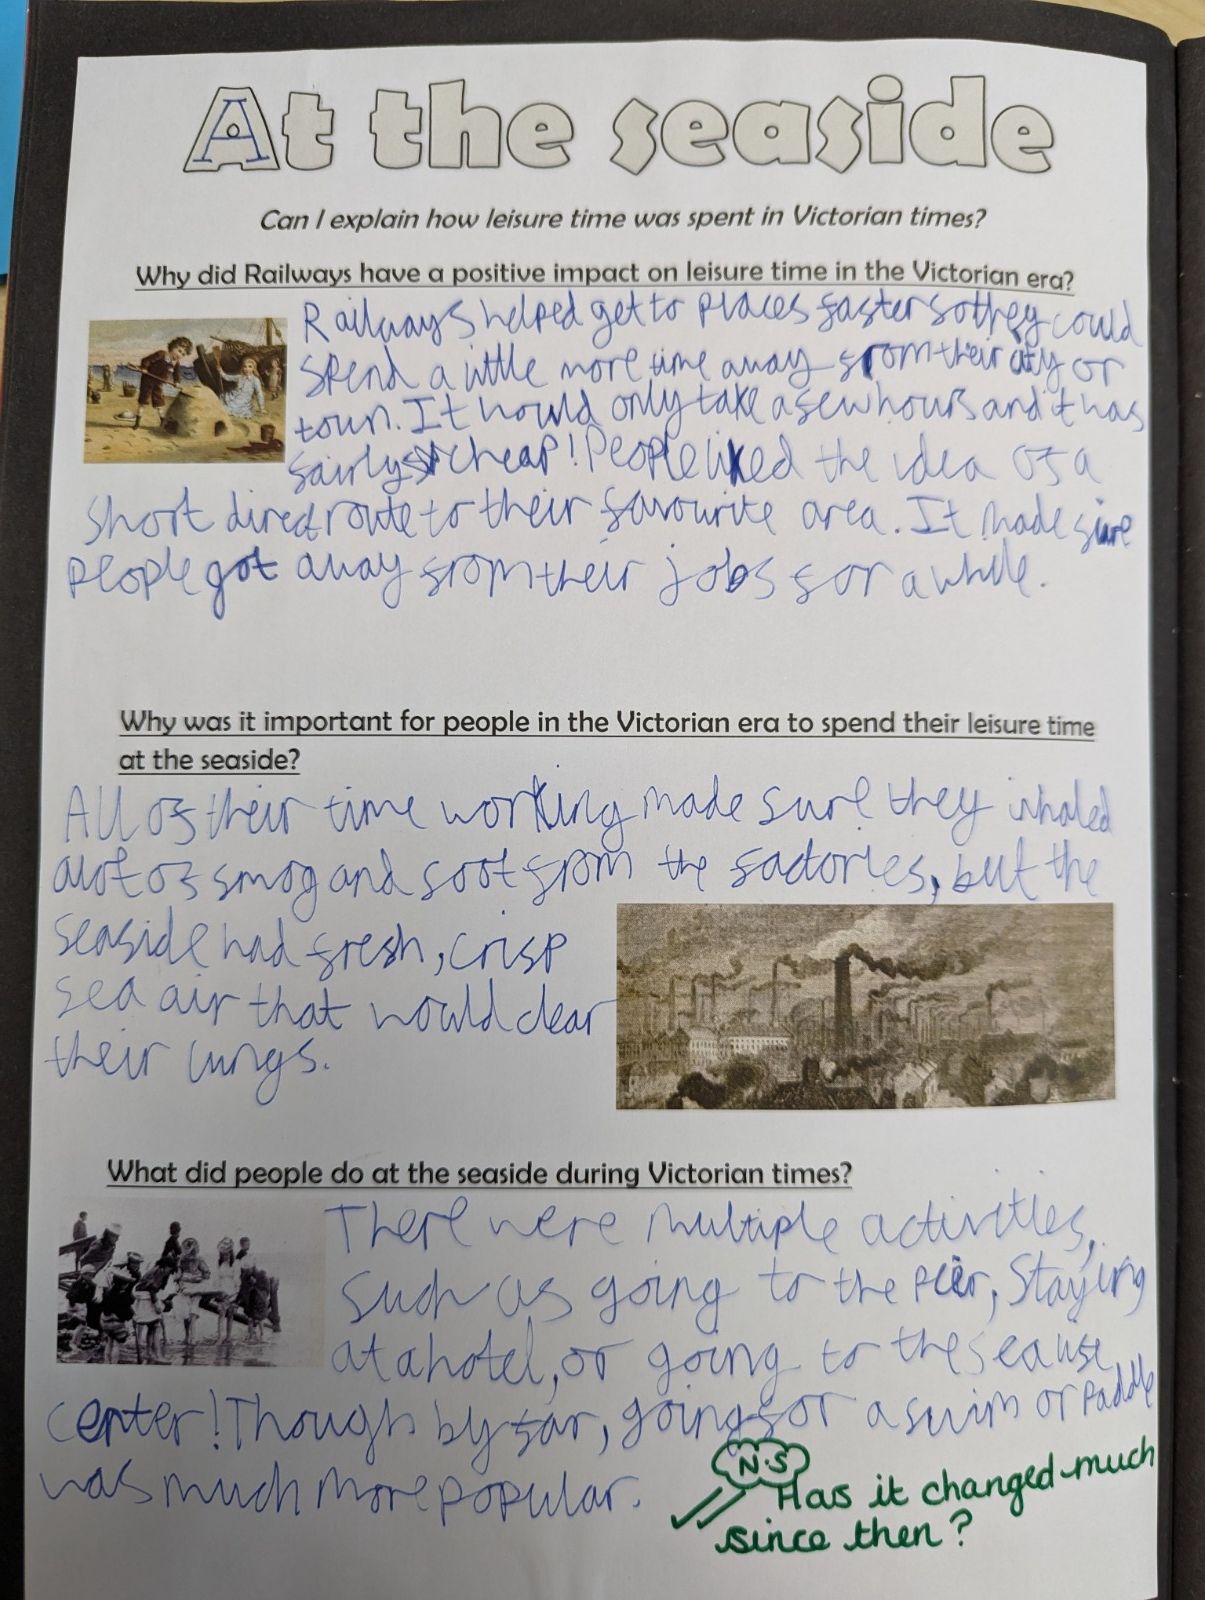 At the seaside
Can I explain how leisure time was spent in Victorian times?
Why did Railways have a positive impact on leisure time in the Victorian era?
Railways helped get to places faster so they could
spend a little more time away from their city or
town. It would only take a few hours and it was
fairly cheap! People liked the idea of a
short direct route to their favourite area. It made sure
people got away from their jobs for a while.
Why was it important for people in the Victorian era to spend their leisure time
at the seaside?
All of their time working made sure they inhaled
alot of smog and soot from the factories, but the
seaside had fresh, crisp
sea air that would clear
their lungs.
What did people do at the seaside during Victorian times?
There were multiple activities,
such as going to the pier, staying
at a hotel, or going to the sealife
center! Though by far, going for a swim or paddle
was much more popular.
N.S
Has it changed much
since then?